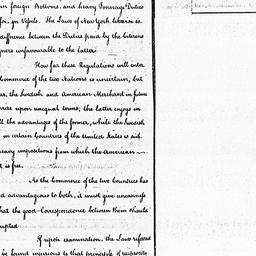 in foreign Bottoms, and heavy Tonnage Duties
foreign Vessels. The Laws of New York likewise
difference between the Duties paid by the Citizens
unfavourable to the latter.
How far these Regulations will enter
Commerce of the two Nations is uncertain; but
the Swedish and American Merchant in future
upon unequal terms; the latter enjoys in
all the advantages of the former, while the Swedish
in certain Countries of the United States is
heavy impositions from which the American
is free.
As the Commerce of the two Countries has
advantageous to both, it must give uneasiness
that the good Correspondence between them should
If upon examination, the Laws referred
be found injurious to that principle of reciprocity